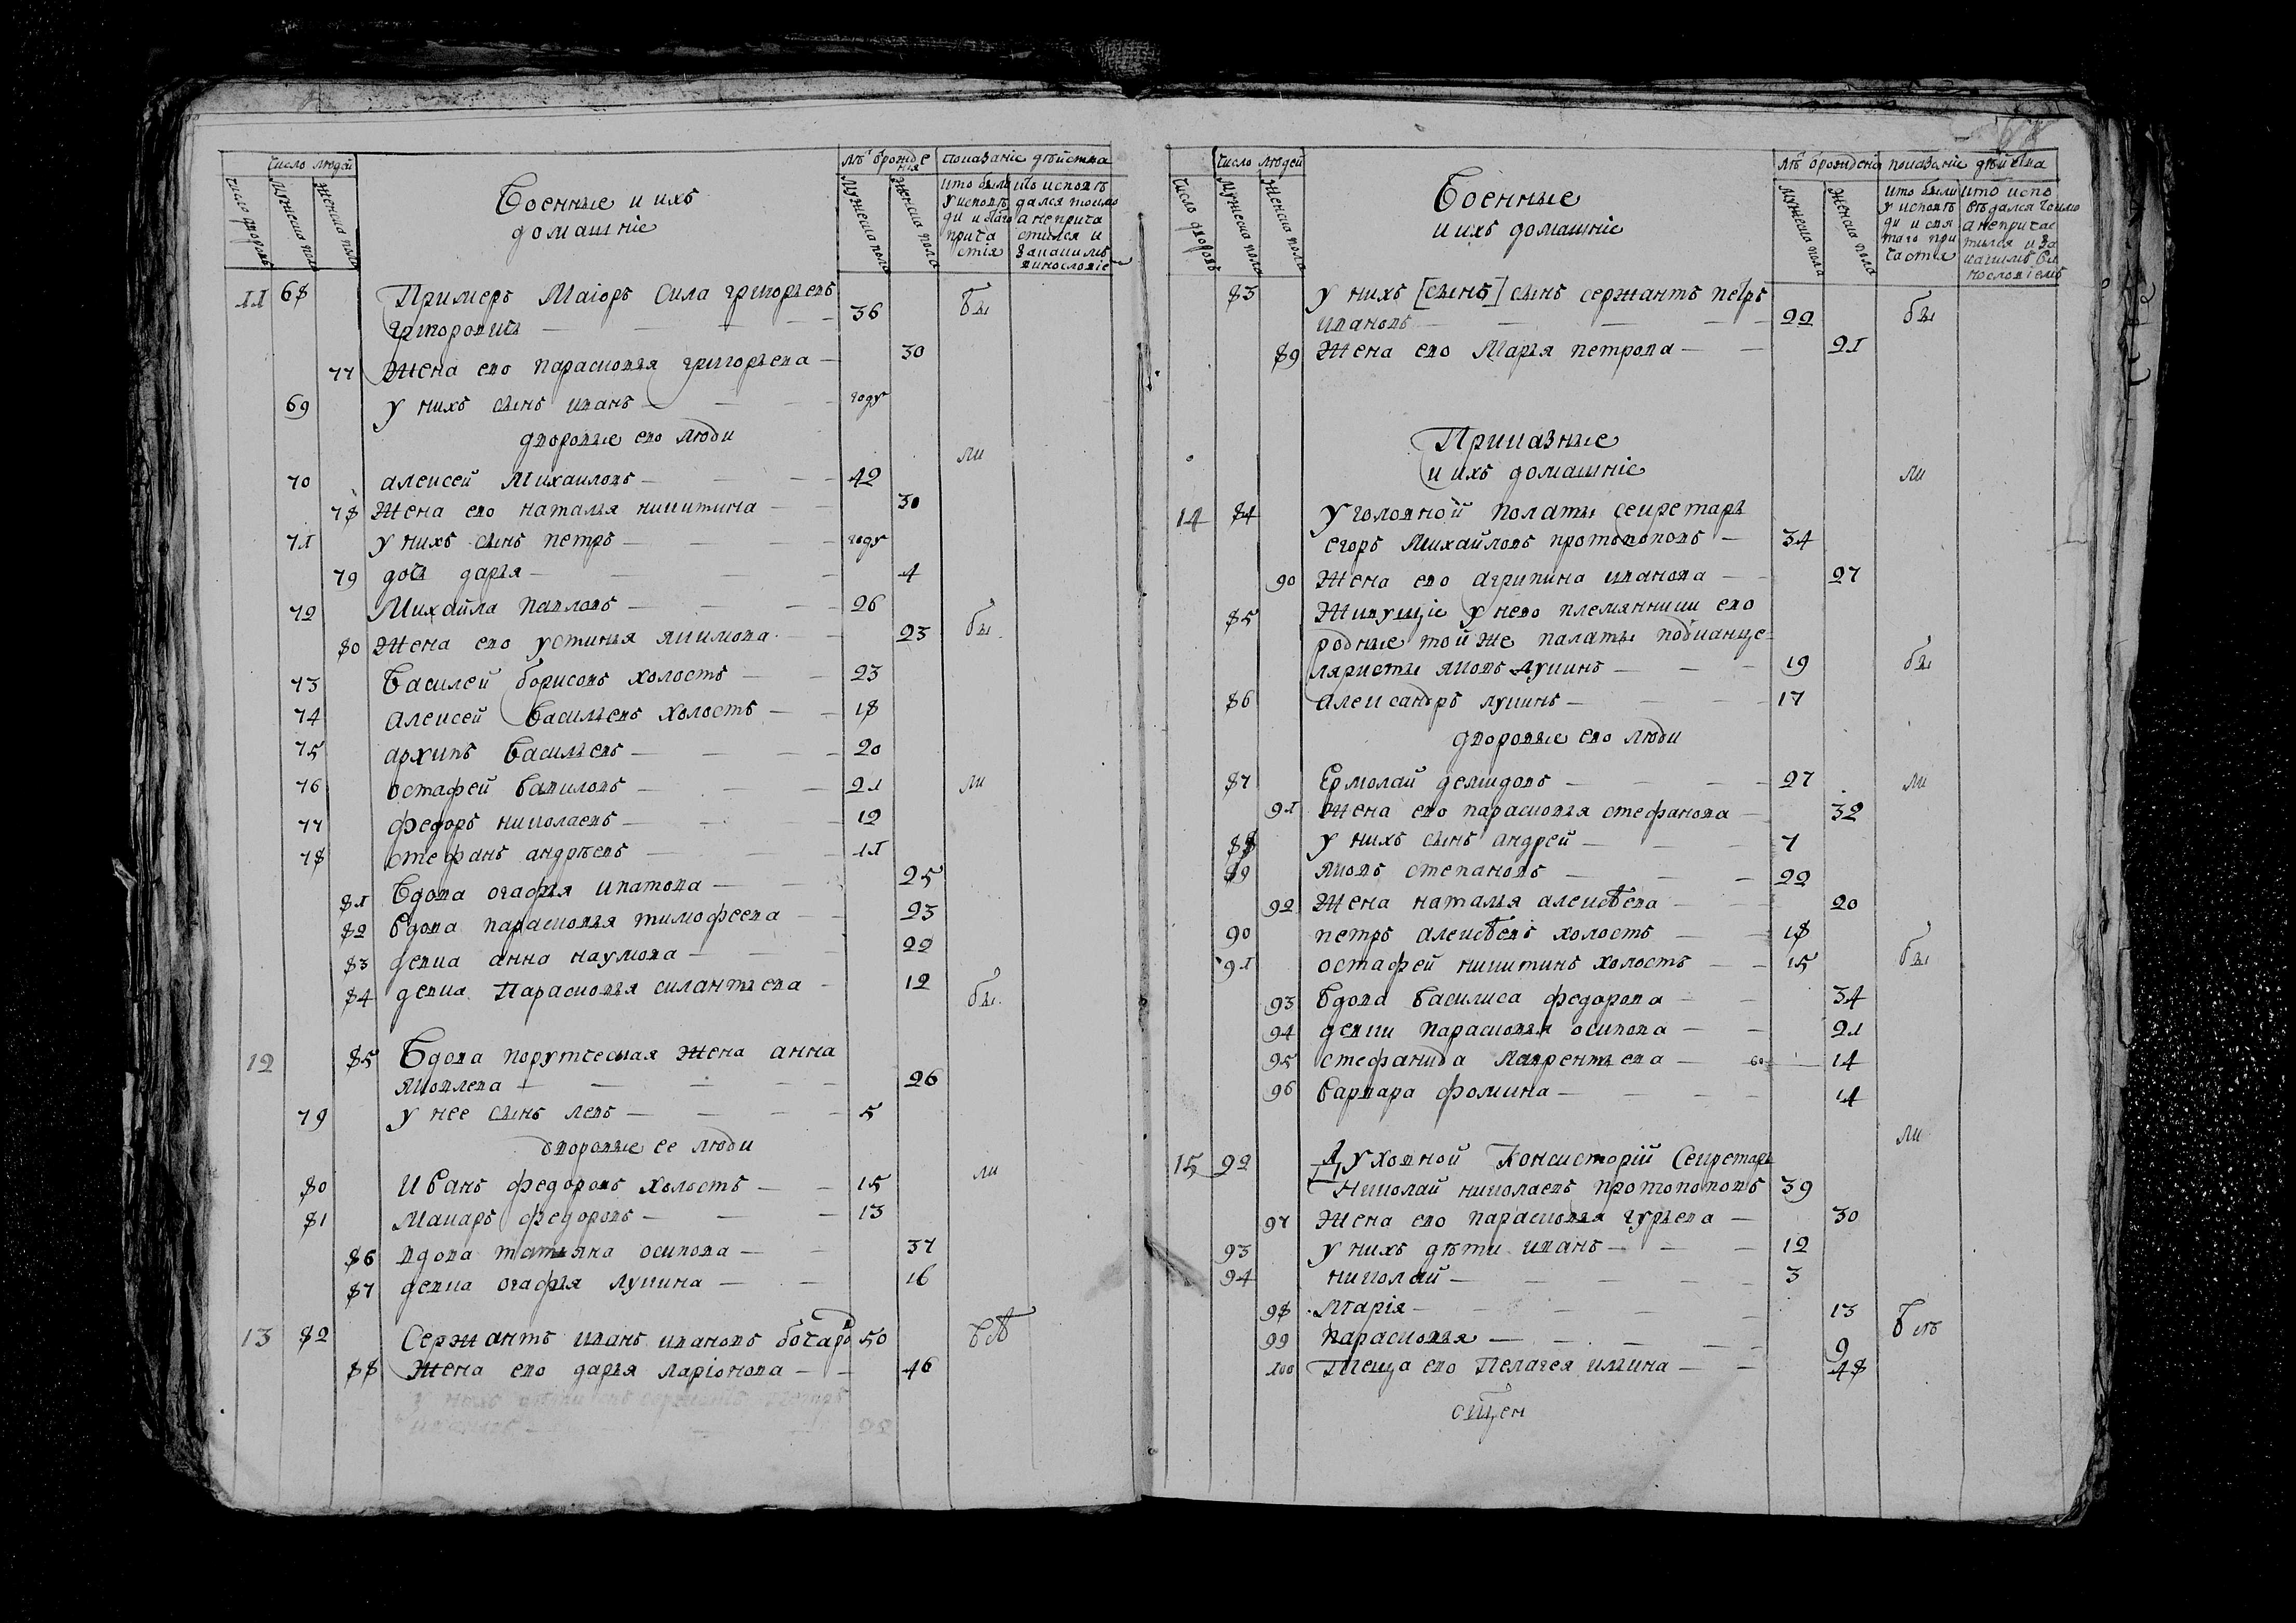 Число людей
Число дворовъ
Мужеска пол
Женска пола
Военные и ихъ
домашніе
лѣт ѿрожде
нія
Мужеска пола
Женска пола
показаніе дѣйства
кто были
у исповѣ
ди и свят
прича
стія
кто исповѣ
дался токмо
а неприча
стился и
за какимъ
винословіе
11 68 Примеръ Маіоръ Сила григорьевъ
григоровичь — 36 бы
77 Жена ево парасковья григорьева — 30
69 У нихъ сынъ иванъ — году
дворовые ево люди
ли
70 алексей Михаиловъ — 42
78 Жена ево наталья никитина — 30
71 У нихъ сынъ петръ — году
79 дочь дарья — 4
72 Михайла павловъ — 26
80 Жена ево устинья якимова — 23 бы
73 Василей борисовъ холостъ — 23
74 алексей Васильевъ холостъ — 18
75 архипъ Васильевъ — 20
76 остафей Вавиловъ — 21 ли
77 федоръ николаевъ — 12
78 стефанъ андрѣевъ — 11
81 Вдова огафья ипатова — 25
82 Вдова парасковья тимофеева — 23
83 девка анна наумова — 22
84 девка Парасковья силантьева — 12 бы
12 85 Вдова порутческая жена анна
яковлева — 26
79 У нее сынъ левъ — 5
дворовые ее люди
80 Иванъ федоровъ холостъ — 15 ли
81 Макаръ федоровъ — 13
86 вдова татьяна осипова — 37
87 девка огафья лукина — 16
13 82 Сержантъ иванъ ивановъ 50
88 Жена ево дарья ларіонова — 46
Число людей
Число дворовъ
Мужеска пола
Женска пола
Военные
и ихъ домашніе
лѣт ѿрожденія
Мужеска пола
Женска пола
показаніе дѣйства
кто были
у исповѣ
ди и свя
таго при
частія
кто испо
вѣдался токмо
а непричас
тился и за
какимъ ви
нословіемъ
83 У нихъ [сынъ] сынъ сержантъ петръ
ивановъ — 22 бы
89 Жена ево Марья петрова — 21
Приказные
и ихъ домашніе
ли
14 84 Уголовной полаты секретарь
егоръ Михайловъ протопоповъ — 34
90 Жена ево агрипина иванова — 27
85 Живущіе у него племянники ево
родные той же палаты подканце
ляристы яковъ лукинъ — 19 бы
86 александръ лукинъ — 17
дворовые ево люди
87 Ермолай демидовъ — 27 ли
91 Жена ево парасковья стефанова — 32
88 У нихъ сынъ андрей — 7
89 яковъ степановъ — 22
92 Жена наталья алексѣева — 20
90 петръ алексѣевъ холостъ — 18
91 остафей никитинъ холостъ — 15 бы
93 Вдова Василиса федорова — 34
94 девки парасковья осипова — 21
95 стефанида Лаврентьева — 14
96 Варвара фомина — 14
ли
15 92 Духовной Консисторіи Секретарь
Николай николаевъ протопоповъ 39
97 Жена ево парасковья гурьева — 30
93 У нихъ дѣти иванъ — 12
94 николай — 3
98 Марія — 13
99 парасковья — 9
100 Теща ево Пелагея ильина — 48